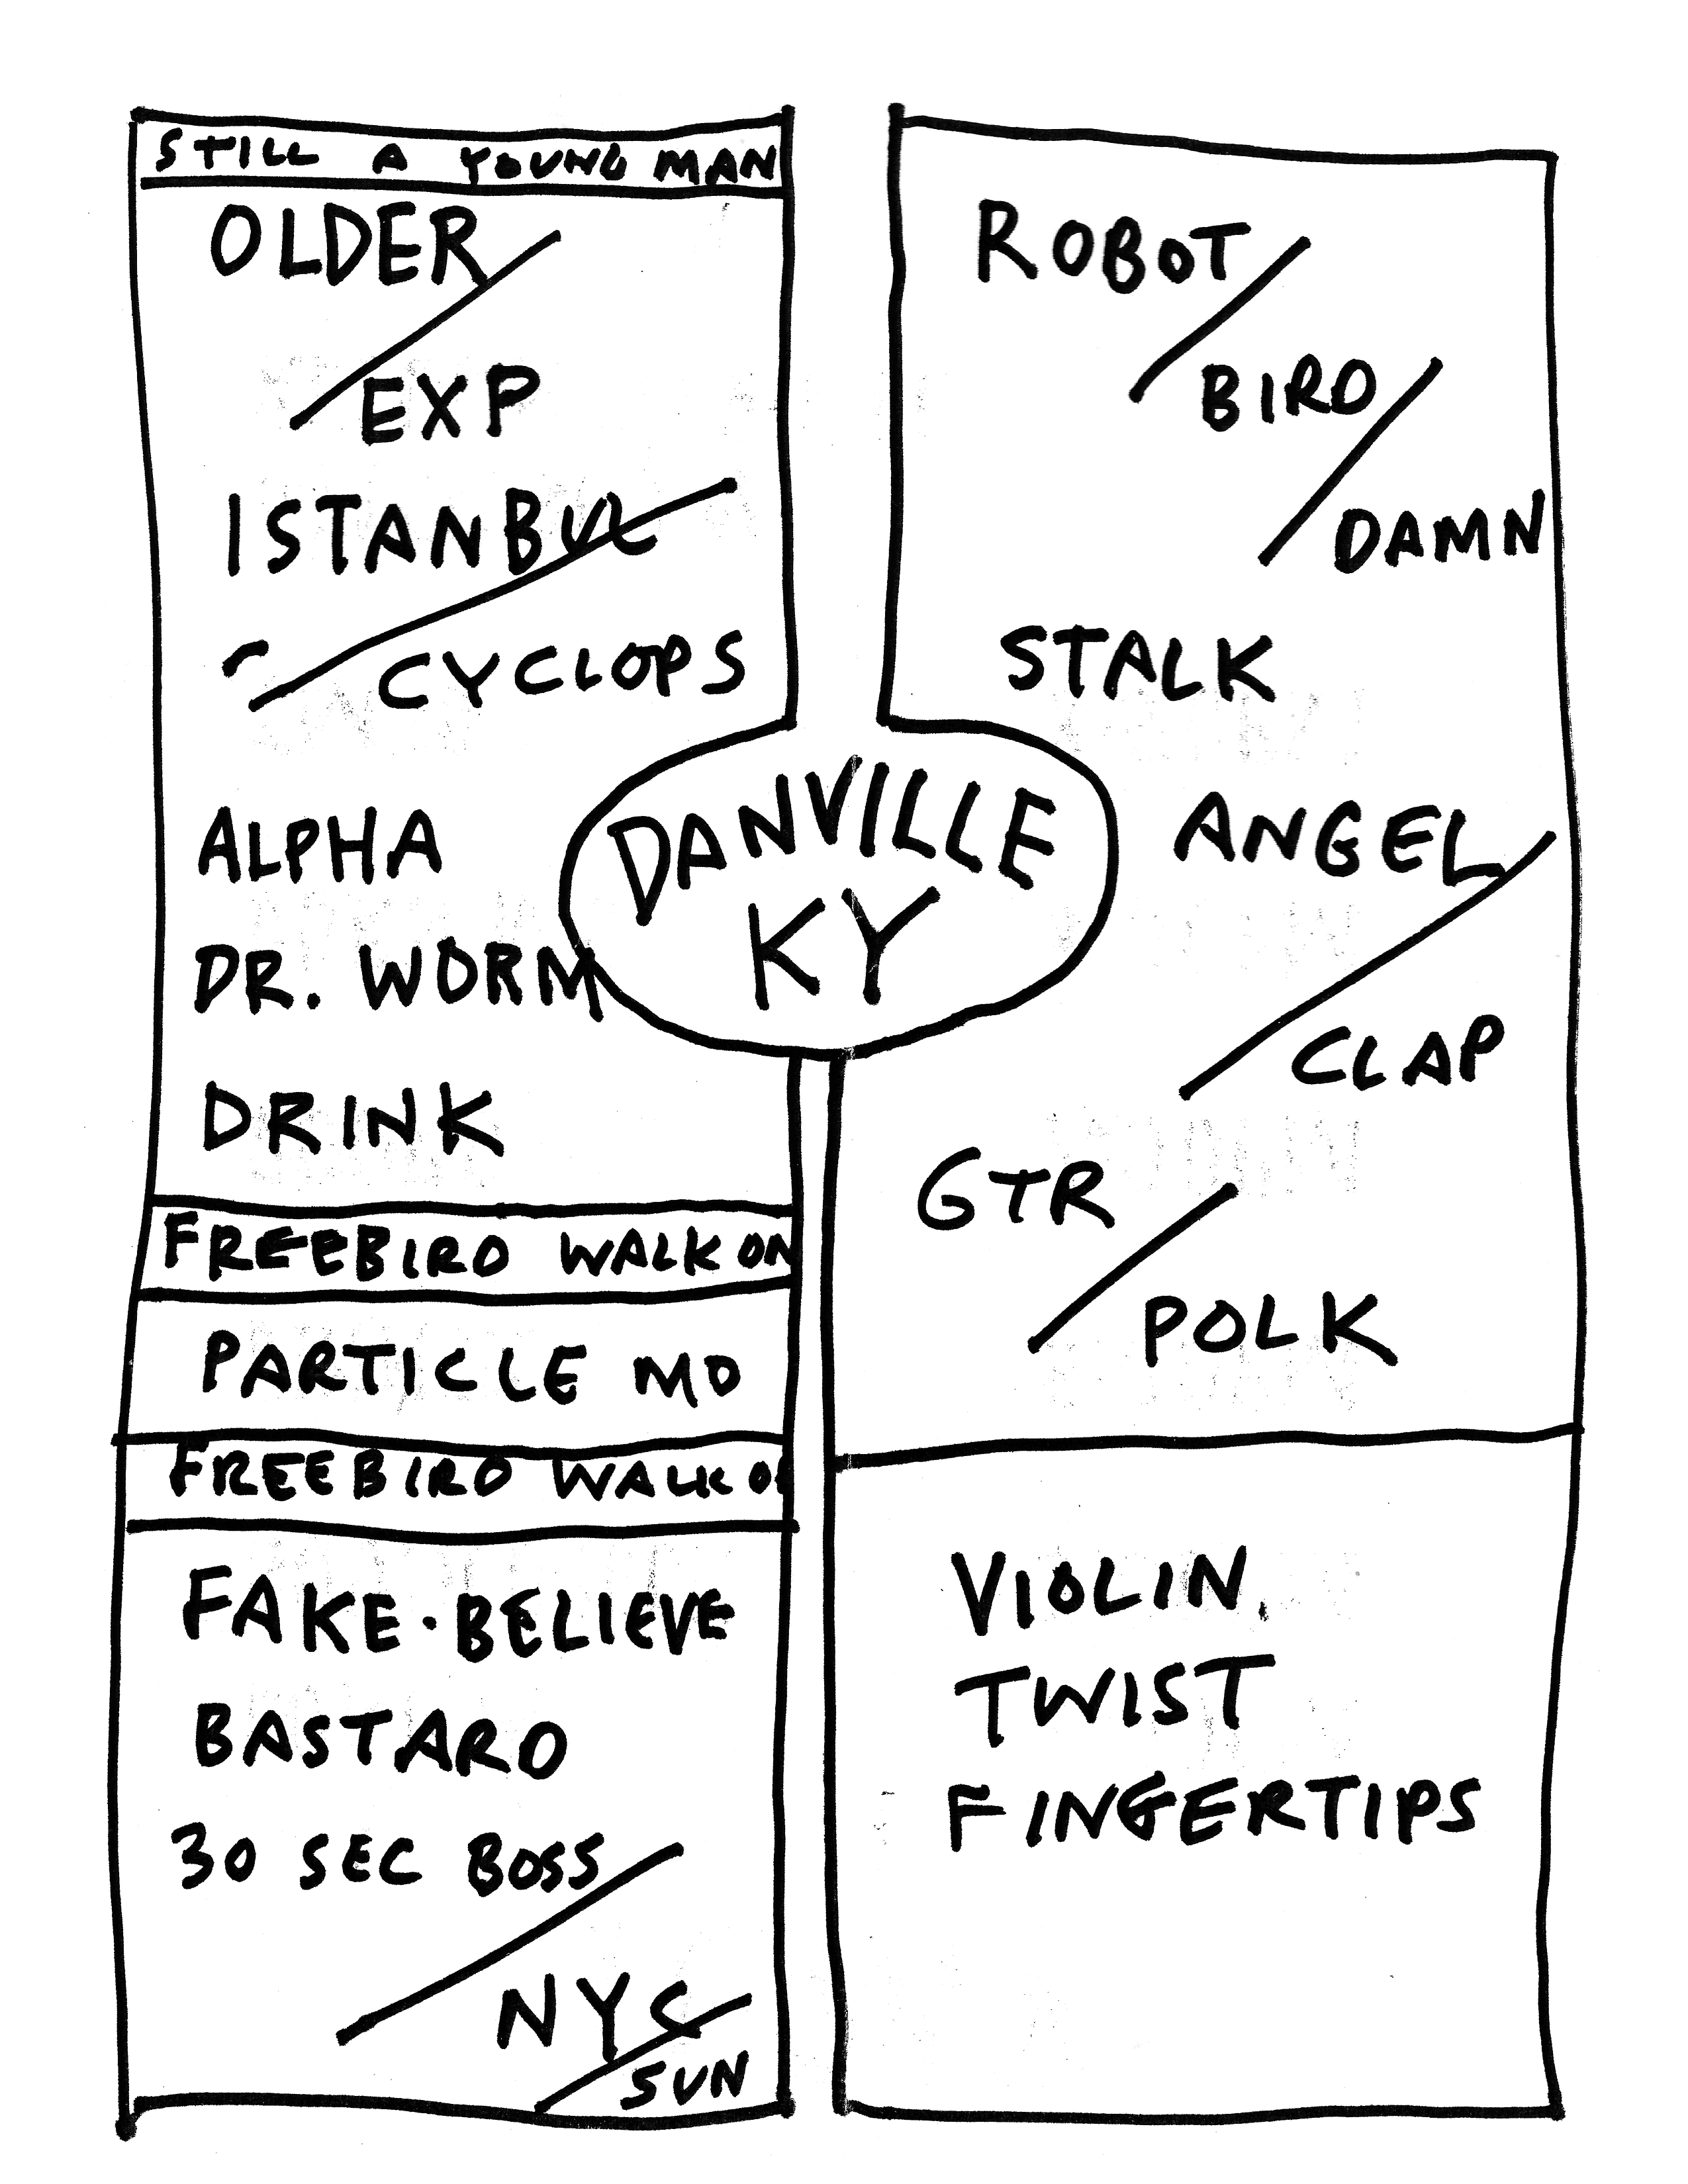 STILL A YOUNG MAN
OLDER/
/EXP
ISTANBUL/
/CYCLOPS
ALPHA
DR. WORM
DRINK
FREEBIRD WALK ON
PARTICLE MO
FREEBIRD WALK
FAKE·BELIEVE
BASTARD
30 SEC BOSS/
/NYC/
/SUN
DANVILLE
KY
ROBOT/
/BIRD/
/DAMN
STALK
ANGEL/
/CLAP
GTR/
/POLK
VIOLIN.
TWIST
FINGERTIPS